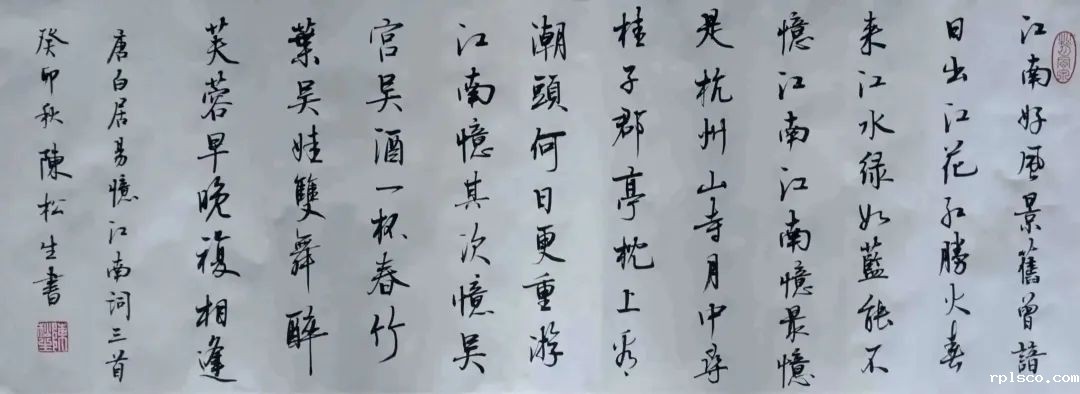 江南好風景舊曾諳
日出江花紅勝火春
來江水绿如藍能不
憶江南江南憶最憶
是杭州山寺月中尋
桂子郡亭枕上看
潮頭何日更重游
江南憶其次憶吴
宫吴酒一杯春竹
葉吴娃雙舞醉
芙蓉早晚複相逢
唐白居易憶江南词三首
癸卯秋陳松生書
rplsco.com